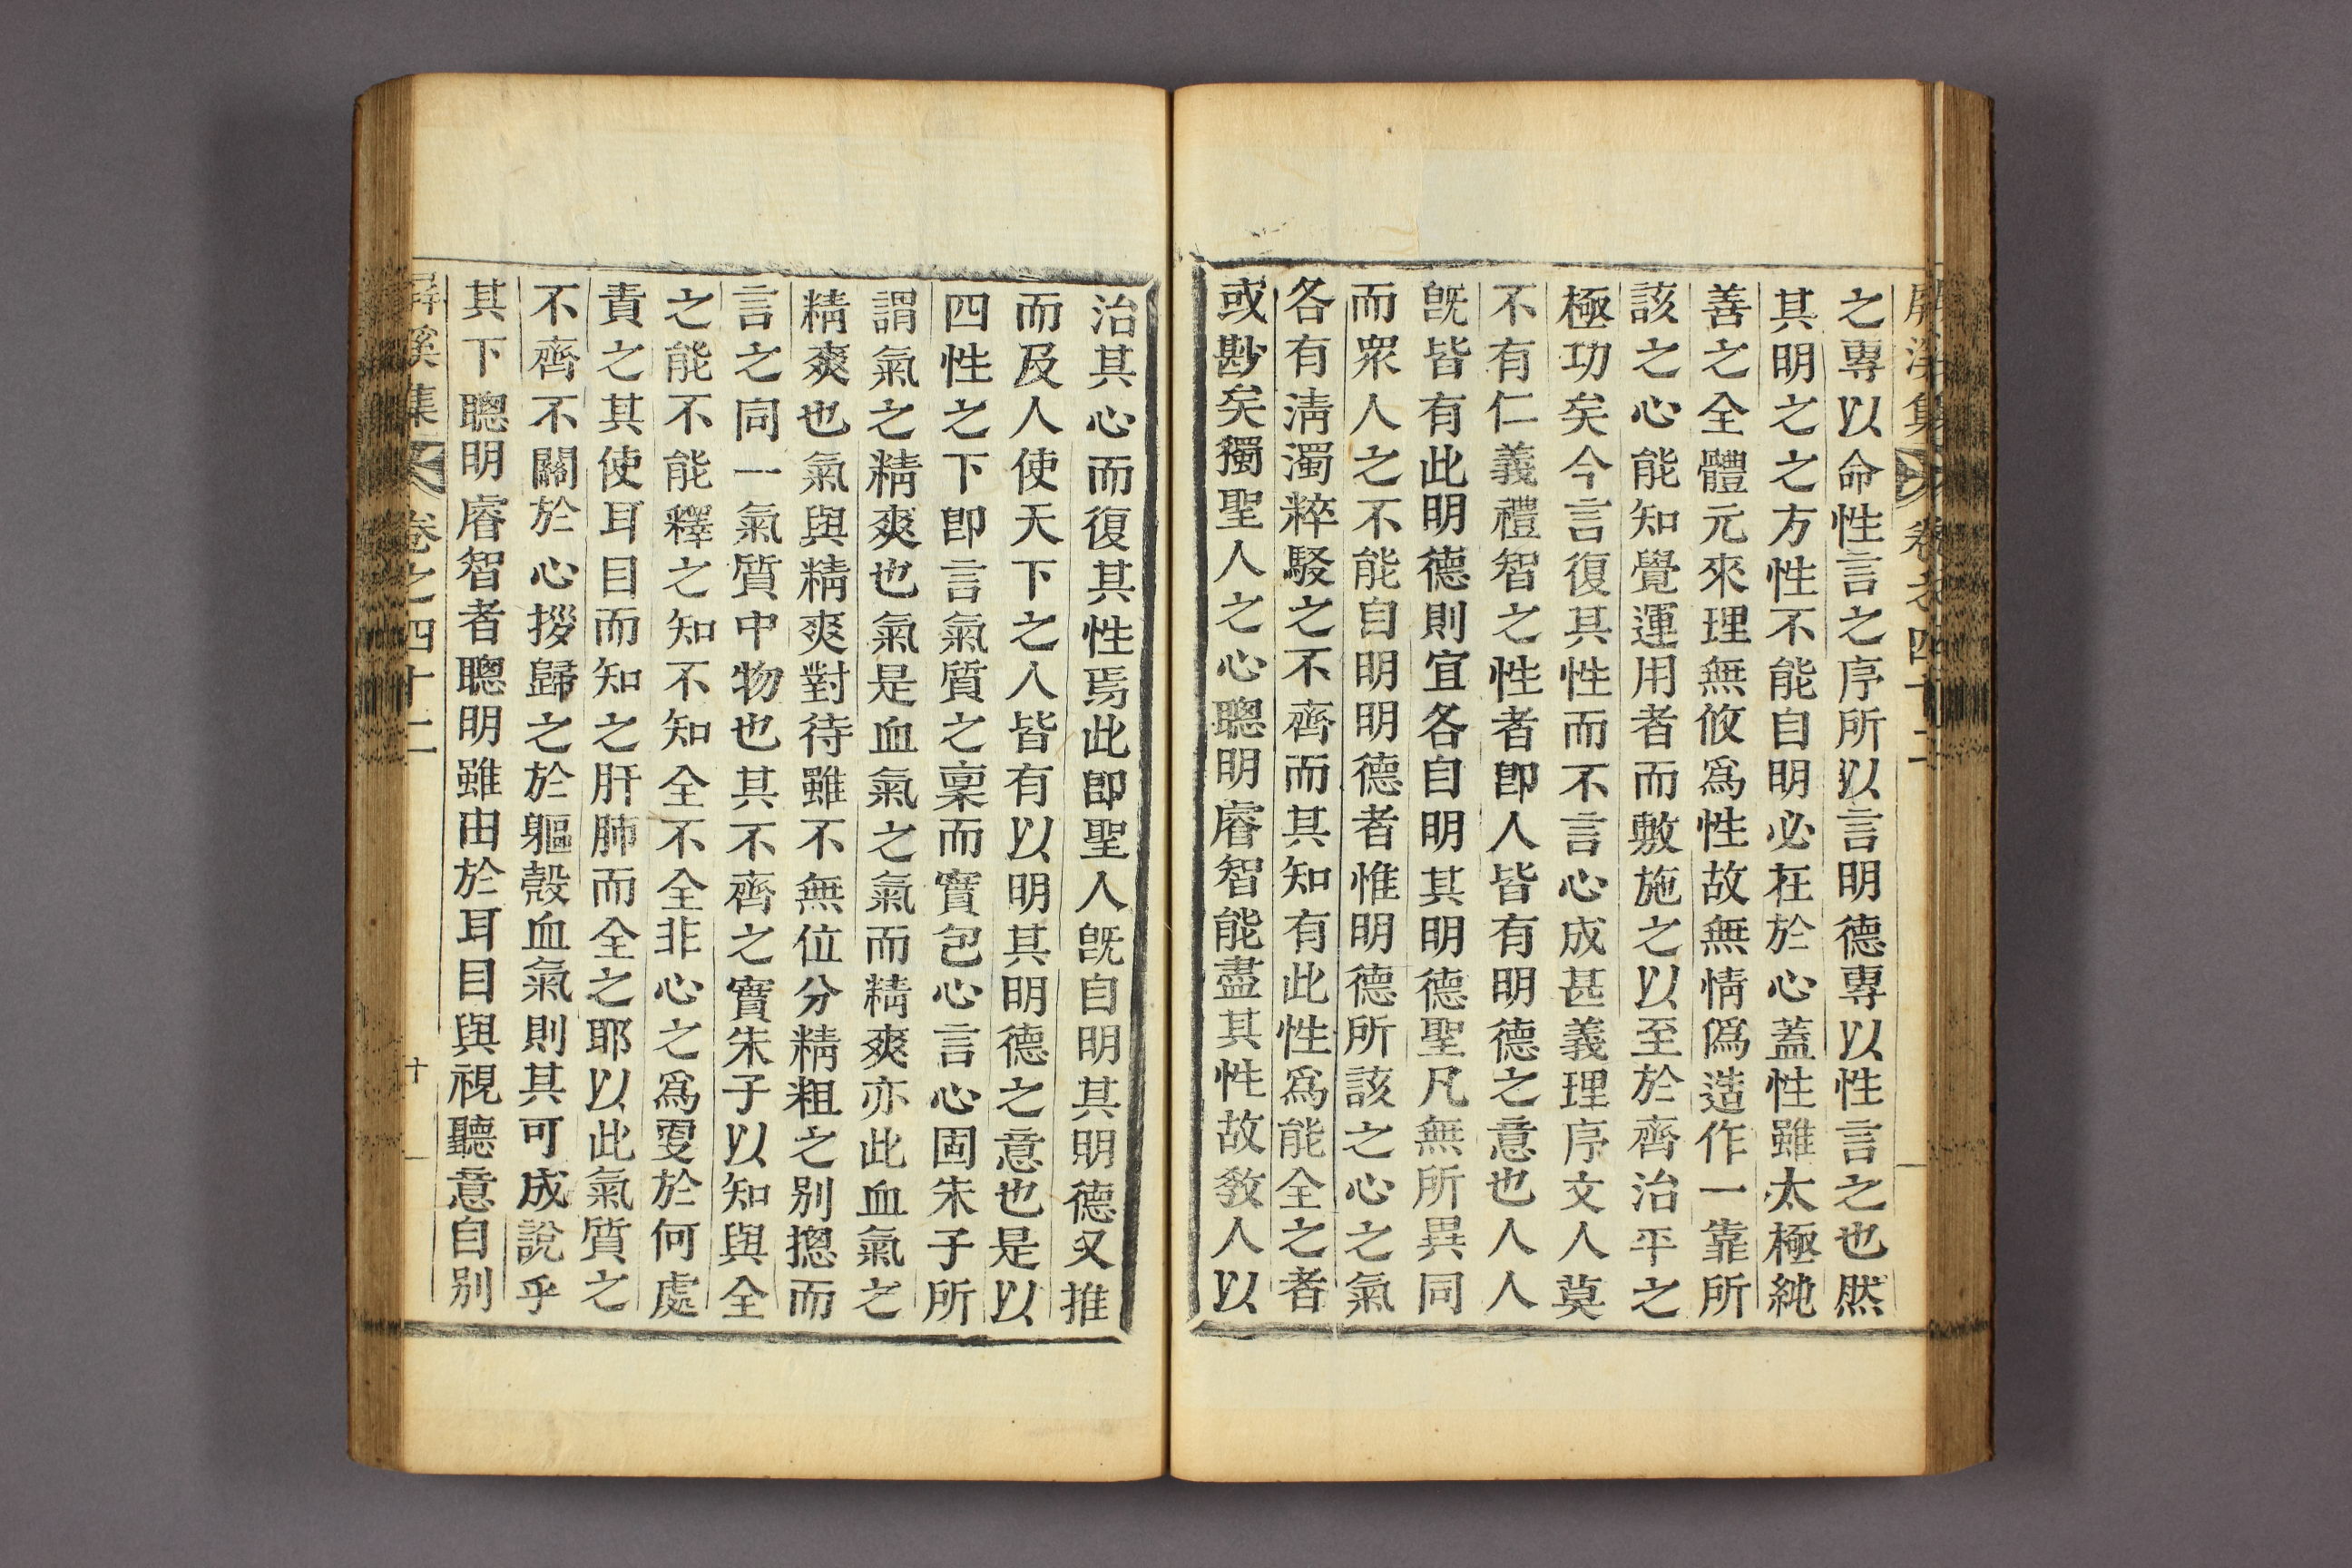 屛溪集 卷之四十二
之專以命性言之序所以言明德專以性言之也然
其明之之方性不能自明必在於心蓋性雖太極純
善之全體元來理無攸爲性故無情僞造作一靠所
該之心能知覺運用者而敷施之以至於齊治平之
極功矣今言復其性而不言心成甚義理序文人莫
不有仁義禮智之性者卽人皆有明德之意也人人
旣皆有此明德則宜各自明其明德聖凡無所異同
而衆人之不能自明明德者惟明德所該之心之氣
各有淸濁粹駁之不齊而其知有此性爲能全之者
或尠矣獨聖人之心聰明睿智能盡其性故敎人以
治其心而復其性焉此卽聖人旣自明其明德又推
而及人使天下之人皆有以明其明德之意也是以
四性之下卽言氣質之稟而實包心言心固朱子所
謂氣之精爽也氣是血氣之氣而精爽亦此血氣之
精爽也氣與精爽對待雖不無位分精粗之别摠而
言之同一氣質中物也其不齊之實朱子以知與全
之能不能釋之知不知全不全非心之爲而於何處
責之其使耳目而知之肝肺而全之耶以此氣質之
不齊不關於心撥歸之於軀殼血氣則其可成說乎
其下聰明睿智者聰明雖由於耳目與視聽意自别
屛溪集 卷之四十二 十一